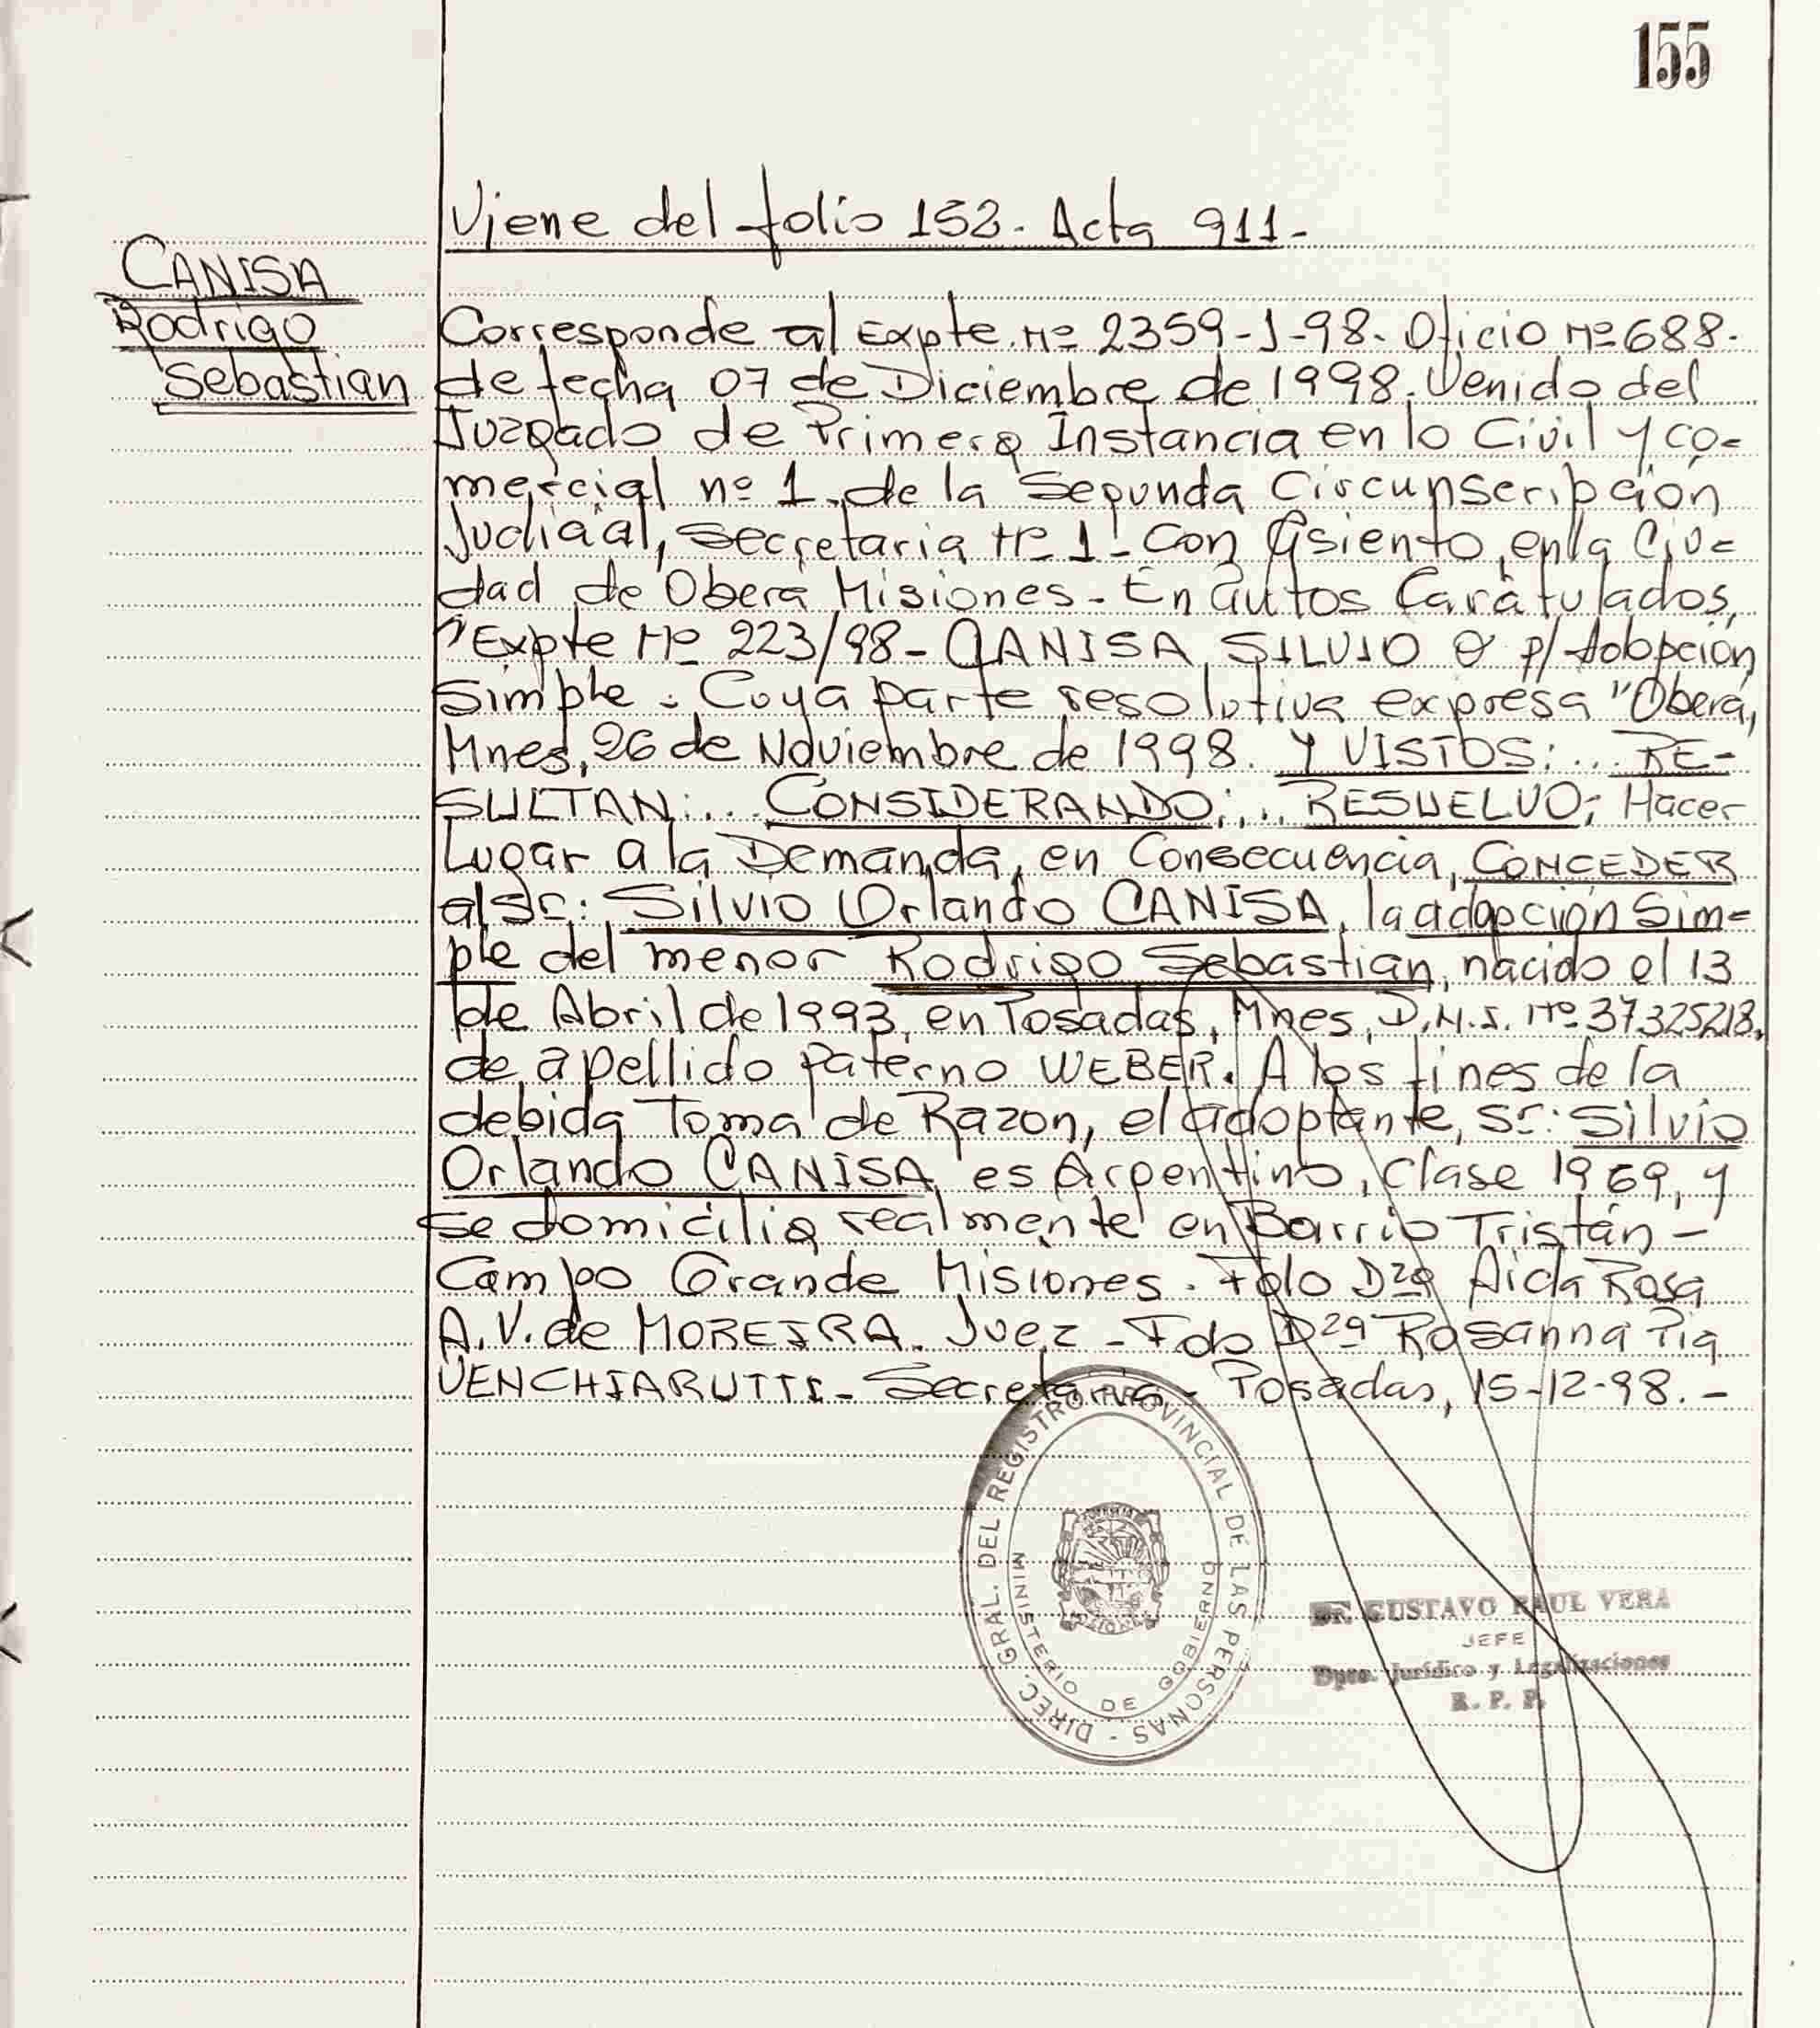 155
Viene del folio 152. Acta 911-
CANISA
Rodrigo
Sebastian
Corresponde al Expte. Nº 2359-J-98. Oficio Nº 688.
de fecha 07 de Diciembre de 1998. Venido del
Juzgado de Primera Instancia en lo Civil y co=
mercial nº 1, de la Segunda Circunscripción
Judicial, Secretaria Nº 1- Con Asiento en la Ciu=
dad de Oberá Misiones- En autos Carátulados,
"Expte Nº 223/98- CANISA, SILVIO O p/ Adopción
Simple. Cuya parte resolutiva expresa "Oberá,
Mnes, 26 de Noviembre de 1998. Y VISTOS:... RE-
SULTAN:... CONSIDERANDO:... RESUELVO: Hacer
Lugar a la Demanda, en Consecuencia, CONCEDER
al Sr: Silvio Orlando CANISA, la adopción Sim=
ple del menor Rodrigo Sebastian, nacido el 13
de Abril de 1993, en Posadas, Mnes, D.N.I. Nº 37325218,
de apellido paterno WEBER. A los fines de la
debida Toma de Razon, el adoptante, Sr: Silvio
Orlando CANISA, es Argentino, Clase 1969, y
se domicilia realmente en Barrio Tristán-
Campo Grande Misiones. Fdo Dra Aida Rosa
A.V. de MOREIRA. Juez - Fdo Dra Rosanna Pia
VENCHIARUTTI- Secretaria- Posadas, 15-12-98.-
DIREC. GRAL. DEL REGISTRO PROVINCIAL DE LAS PERSONAS -
MINISTERIO DE GOBIERNO
DR. GUSTAVO RAUL VERA
JEFE
Dpto. Jurídico y Legalizaciones
R. P. P.